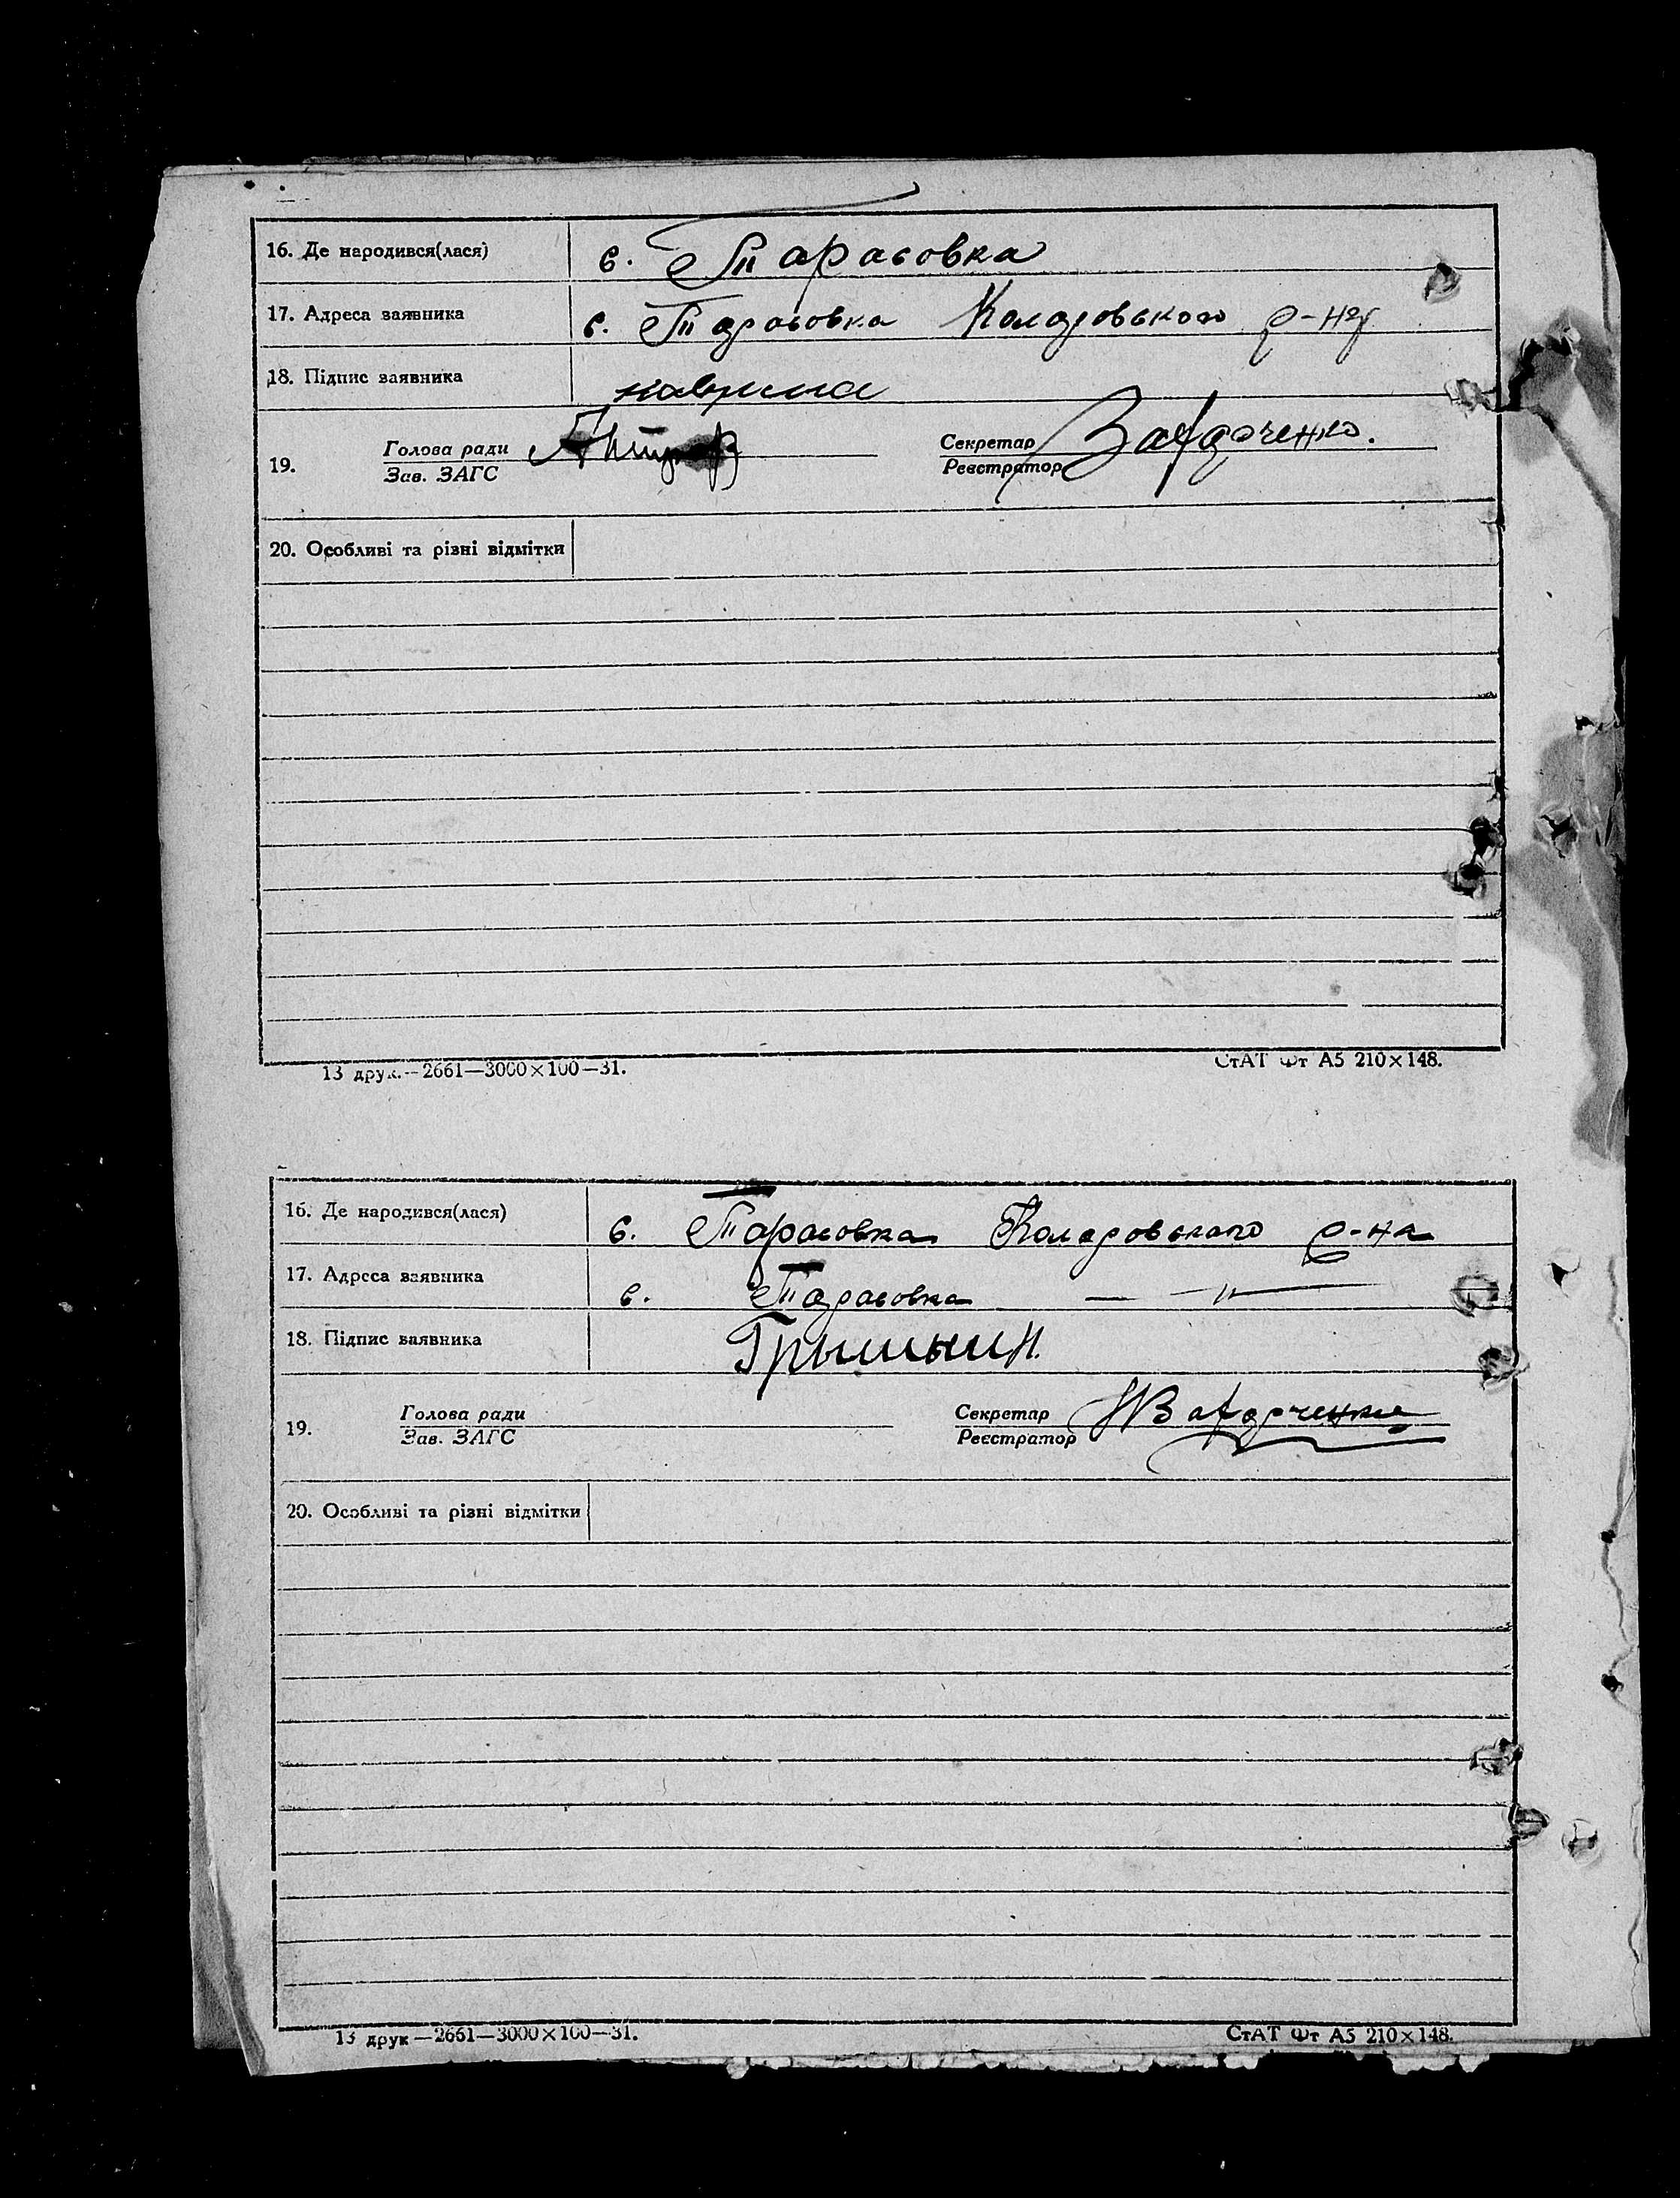 16. Де народився(лася) с. Тарасовка
17. Адреса заявника с. Тарасовка Коларовського р-ну
18. Підпис заявника
Голова ради Секретар
19. Зав. ЗАГС Реєстратор
20. Особливі та різні відмітки
13 друк.—2661—3000×100—31. СтАТ Фт А5 210×148.
16. Де народився(лася) с. Тарасовка Коларовського р-на
17. Адреса заявника с. Тарасовка — " —
18. Підпис заявника
Голова ради Секретар
19. Зав. ЗАГС Реєстратор
20. Особливі та різні відмітки
13 друк—2661—3000×100—31. СтАТ Фт А5 210×148.